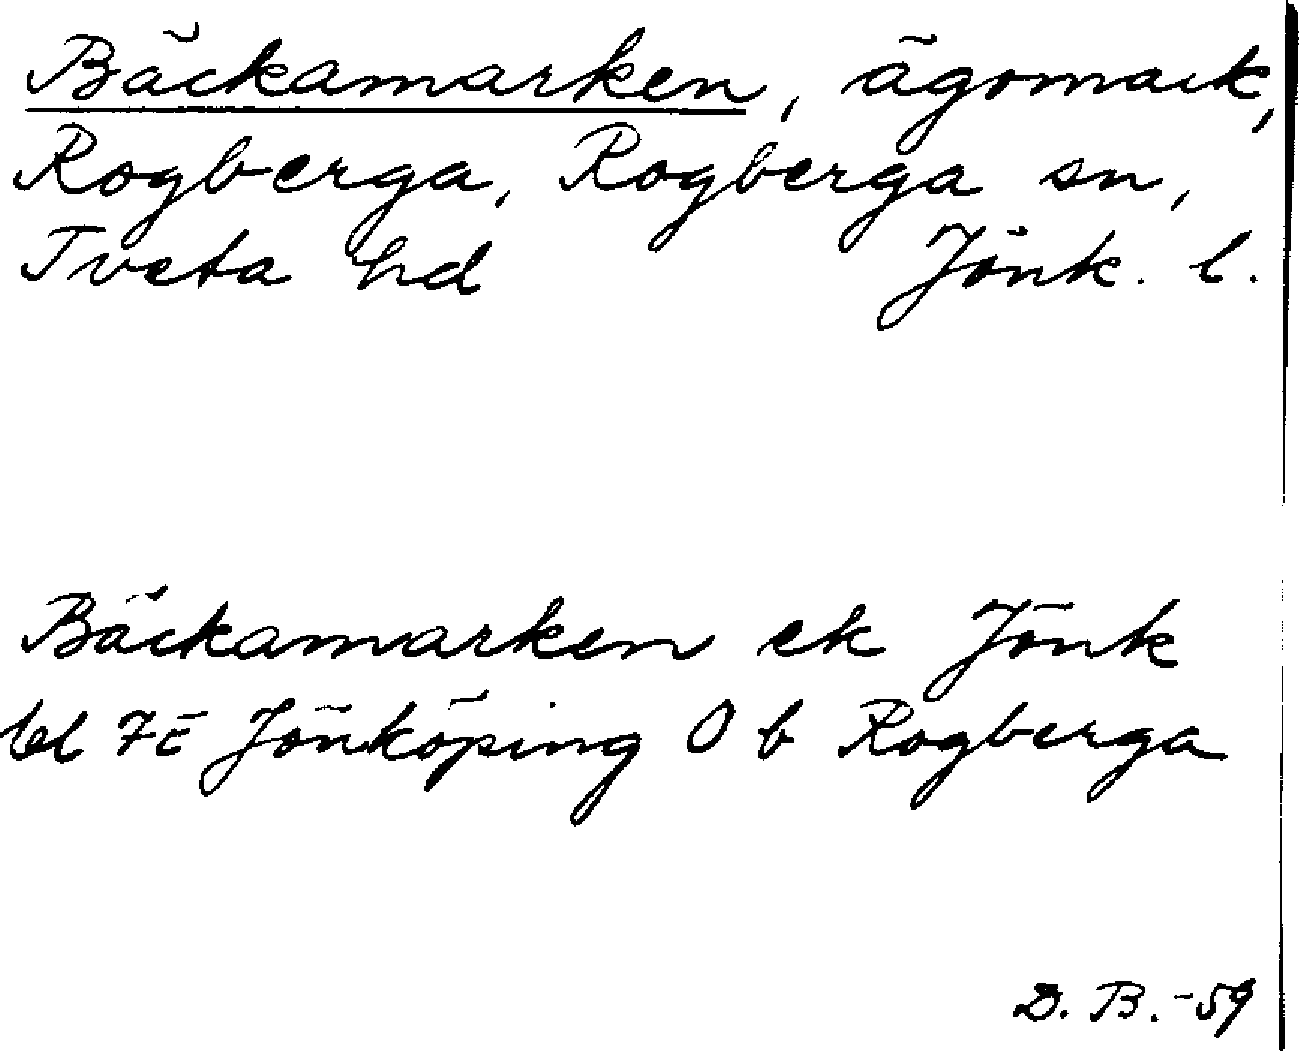 Bäckamarken, ägomark,
Rogberga, Rogberga sn,
Tveta hd Jönk. l.
Bäckamarken ek Jönk
bl 7E Jönköping O b Rogberga
D. B. -59